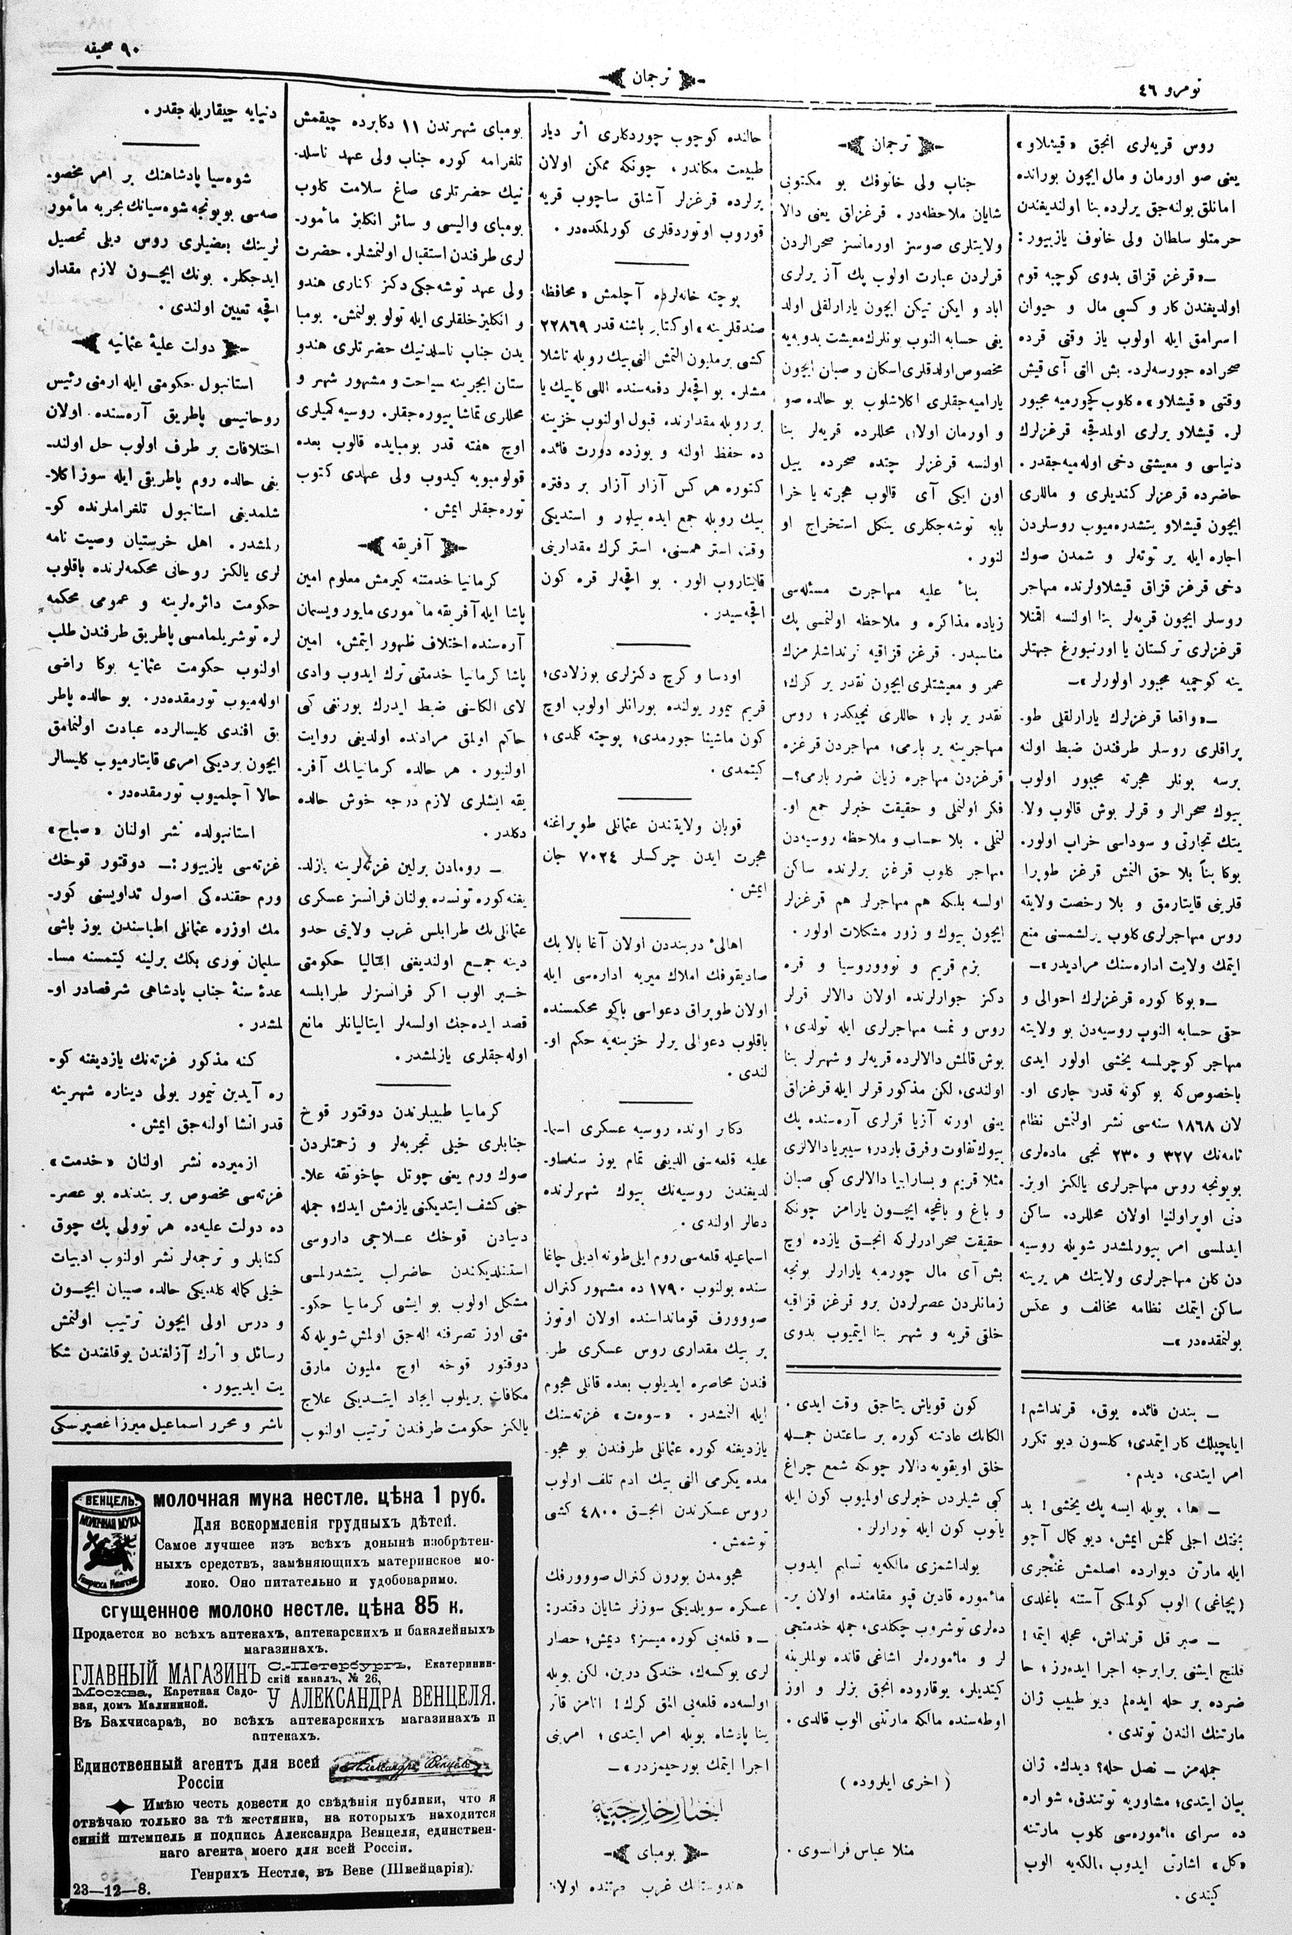 نومرو ٤٦
ترجمان
٩٠ صحیفه
روس قریه‌لری انجق «قیشلاو»
یعنی صو اورمان و مال ایچون بورانده
امانلق بوله‌جق یرلرده بنا اولندیغندن
حرمتلو سلطان ولی خانوف یازییور:
ـ«قرغز قزاق بدوی کوچبه قوم
اولدیغندن کار و کسبی مال و حیوان
اسرامق ایله اولوب یاز وقتی قرده
صحراده جورسه‌لرد. بش التی آی قیش
وقتی «قیشلاو»ه کلوب کچورمیه مجبور
لر. قیشلاو یرلری اولمدقجه قرغزلرك
دنیاسی و معیشتی دخی اوله‌میه‌جقدر.
حاضرده قرغزلر کندیلری و ماللری
ایچون قیشلاو یتشدره‌میوب روسلردن
اجاره ایله یر توته‌لر و شمدن صوك
دخی قرغز قزاق قیشلاولرنده مهاجر
روسلر ایچون قریه‌لر بنا اولنسه اقمتلا
قرغزلری ترکستان یا اورنبورغ جهتلر
ینه کوچمیه مجبور اولورلر»ـ
ـ«واقعا قرغزلرك یارارلقلی طو-
پراقلری روسلر طرفندن ضبط اولنه
برسه بونلر هجرته مجبور اولوب
بیوك صحرالر و قرلر بوش قالوب ولا-
یتك تجارتی و سوداسی خراب اولور.
بوکا بناً بلا حق النمش قرغز طوپرا-
قلرینی قایتارمق و بلا رخصت ولایته
روس مهاجرلری کلوب یرلشمسنی منع
ایتمك ولایت اداره‌سنك مرادیدر»ـ
ـ«بوکا کوره قرغزلرك احوالی و
حقی حسابه النوب روسیه‌دن بو ولایته
مهاجر کوچرلمسه یخشی اولور ایدی
باخصوص‌که بو کونه قدر جاری او-
لان ١٨٦٨ سنه‌سی نشر اولنمش نظام
نامه‌نك ٣٢٧ و ٢٣٠ نجی ماده‌لری
بویونجه روس مهاجرلری یالکز اویز-
دنی اوپراولنیا اولان محللرد. ساکن
ایدلمسی امر بیورلمشدر شویله روسیه
دن کلن مهاجرلری ولایتك هر یرینه
ساکن ایتمك نظامه مخالف و عکس
بولنمقده‌در»ـ
ـ بندن فائده یوق، قرنداشم!
ایلچیلك کار ایتمدی؛ کلسون دیو تکرر
امر ایتدی، دیدم.
ـ ها، بویله ایسه پك یخشی! بد
بختك اجلی کلمش ایمش، دیو کمال آجو
ایله مارتن دیوارده اصلمش غنجری
(پچاغی) الوب کولمکی آستنه باغلدی
ـ صبر قل قرنداش، عجله ایتمه!
قلنج ایشنی برابرجه اجرا ایده‌رز؛ حا
ضرده بر حله ایده‌لم دیو طبیب ژان
مارتنك الندن توتدی.
جمله‌مز ـ نصل حله؟ دیدك. ژان
بیان ایتدی؛ مشاوریه توتندق، شواره
ده سرای مأموره‌سی کلوب مارتنه
«کل» اشارتی ایدوب مالکه‌یه الوب
کیتدی.
ترجمان
جناب ولی خانوفك بو مکتوبی
شایان ملاحظه‌در. قرغزاق یعنی دالا
ولایتلری صوسز اورمانسز صحرالردن
قرلردن عبارت اولوب پك آز یرلری
اباد و ایکن تیکن ایچون یارارلقلی اولد
یغی حسابه النوب بونلرك معیشت بدویه‌یه
مخصوص اولدقلری اسکان و صبان ایچون
یارامیه‌جقلری اکلاشلوب بو حالده صو
و اورمان اولان محللرده قریه‌لر بنا
اولنسه قرغزلر چتده صحرده ییل
اون ایکی آی قالوب هجرته یا خرا
بابه توشه‌جکلری ینکل استخراج او
لنور.
بنأ علیه مهاجرت مسئله‌سی
زیاده مذاکره و ملاحظه اولنمسی پك
مناسبدر. قرغز قزاقیه قرنداشلرمزك
عمر و معیشتلری ایچون نقدر یر کرك؛
نقدر یر بار؛ حاللری نچیکدر؛ روس
مهاجرینه یر بارمی؛ مهاجردن قرغزه
قرغزدن مهاجره زیان ضرر بارمی؟ـ
فکر اولنملی و حقیقت خبرلر جمع او-
لنملی. بلا حساب و ملاحظه روسیه‌دن
مهاجر کلوب قرغز یرلرنده ساکن
اولسه بلکه هم مهاجرلر هم قرغزلر
ایچون بیوك و زور مشکلات اولور.
بزم قریم و نووروسیا و قره
دکز جوارلرنده اولان دالالر قرلر
روس و نمسه مهاجرلری ایله تولدی؛
بوش قالمش دالالرده قریه‌لر و شهرلر بنا
اولندی، لکن مذکور قرلر ایله قرغزاق
یعنی اورته آزیا قرلری آره‌سنده پك
بیوك تفاوت و فرق باردر؛ سیبریا دالالری
مثلا قریم و بسارابیا دالالری کبی صبان
و باغ و باغچه ایچون یارامز چونکه
حقیقت صحرادرلرکه انجق یازده اوچ
بش آی مال جورمیه یارارلر بونجه
زمانلردن عصرلردن برو قرغز قزاقیه
خلقی قریه و شهر بنا ایتمیوب بدوی
کون قویاش یتاجق وقت ایدی.
الکانك عادتنه کوره بر ساعتدن جمله
خلق اویقویه دالار چونکه شمع چراغ
کبی شیلردن خبرلری اولمیوب کون ایله
یاتوب کون ایله تورارلر.
یولداشمزی مالکه‌یه تسلیم ایدوب
مأموره قادین قپو مقامنده اولان پر-
ده‌لری توشروب چکلدی، جمله خدمتجی
لر و مأموره‌لر اشاغی قاتده یوللرینه
کیتدیلر، یوقاروده انجق بزلر و اوز
اوطه‌سنده مالکه مارتنی الوب قالدی.
(اخری ایلروده)
منلا عباس فرانسوی.
حالنده کوچوب جوردکلری اثر دیار
طبیعت مکاندر، چونکه ممکن اولان
یرلرده قرغزلر آشلق ساچوب قریه
قوروب اوتوردقلری کورلمکده‌در.
پوچته خانه‌لرده آچلمش «محافظه
صندقلرینه» اوکتابر باشنه قدر ٢٢٨٦٩
کشی بر ملیون التمش التی بیك روبله تاشلا
مشلر. بو اقچه‌لر دفعه‌سنده اللی کاپیك یا
بر روبله مقدارنده قبول اولنوب خزینه
ده حفظ اولنه و یوزده دورت فائده
کتوره هر کس آزار آزار بر دفتره
بیك روبله جمع ایده بیلور و استدیکی
وقت استر همسنی، استر کرك مقدارینی
قایتاروب الور. بو اقچه‌لر قره کون
اقچه‌سیدر.
اودسا و کرچ دکزلری بوزلادی؛
قریم تیمور یولنده بورانلر اولوب اوچ
کون ماشینا جورمدی؛ پوچته کلمدی؛
کیتمدی.
قوبان ولایتندن عثمانلی طوپراغنه
هجرت ایدن چرکسلر ٧٠٢٤ جان
ایمش.
اهالئ دربنددن اولان آغا بالا بك
صادیقوفك املاك میریه اداره‌سی ایله
اولان طوپراق دعواسی باکو محکمسنده
باقلوب دعوالی یرلر خزینه‌یه حکم او-
لندی.
دکابر اونده روسیه عسکری اسما-
علیه قلعه‌سنی الدیغی تمام یوز سنه‌طو-
لدیغندن روسیه‌نك بیوك شهرلرنده
دعالر اولندی.
اسماعیله قلعه‌سی روم ایلی طونه ادیلی چاغا
سنده بولنوب ١٧٩٠ ده مشهور کنرال
صووورف قومانداسنده اولان اوتوز
بر بیك مقداری روس عسکری طر-
فندن محاصره ایدیلوب بعده قانلی هجوم
ایله النمشدر. «سوه‌ت» غزته‌سنك
یازدیغنه کوره عثمانلی طرفندن بو هجو-
مده یکرمی التی بیك ادم تلف اولوب
روس عسکرندن انجق ٤٨٠٠ کشی
توشمش.
هجومدن بورون کنرال صووورفك
عسکره سویلدیکی سوزلر شایان دقتدر:
ـ« قلعه‌یی کوره میسز؟ دیمش؛ حصار
لری یوکسه‌ك، خندکی درین، لکن بویله
اولسه‌ده قلعه‌یی المق کرك! انامز قاز
ینا پادشاه بویله امر ایتدی؛ امرینی
اجرا ایتمك بورجیمزدر»ـ
اخبار خارجیه
بومبای
هندوستانك غرب جهتنده اولان
بومبای شهرندن ١١ دکابرده چیقمش
تلغرامه کوره جناب ولی عهد ناسلد-
نیك حضرتلری صاغ سلامت کلوب
بومبای والیسی و سائر انکلیز مأمور-
لری طرفندن استقبال اولنمشلر. حضرت
ولی عهد توشه‌جکی دکز کناری هندو
و انکلیز خلقلری ایله تولو بولنمش. بومبا
یدن جناب ناسلدنیك حضرتلری هندو
ستان ایچرینه سیاحت و مشهور شهر و
محللری تماشا بیوره‌جقلر. روسیه کمیلری
اوچ هفته قدر بومبایده قالوب بعده
قولومبویه کیدوب ولی عهدی کتوب
توره‌جقلر ایمش.
آفریقه
کرمانیا خدمتنه کیرمش معلوم امین
پاشا ایله آفریقه مأموری مایور ویسمان
آره‌سنده اختلاف ظهور ایتمش، امین
پاشا کرمانیا خدمتنی ترك ایدوب وادی
لای الکاسنی ضبط ایدرك بورنغی کبی
حاکم اولمق مرادنده اولدیغی روایت
اولنیور. هر حالده کرمانیانك آفر-
یقه ایشلری لازم درجه خوش حالده
دکلدر.
ـ رومادن برلین غزته‌لرینه یازلد-
یغنه کوره تونسده بولنان فرانسز عسکری
عثمانلی‌نك طرابلس غرب ولایتی حدو
دینه جمع اولندیغنی ایتالیا حکومتی
خبر الوب اکر فرانسزلر طرابلسه
قصد ایده‌جك اولسه‌لر ایتالیانلر مانع
اوله‌جقلری یازلمشدر.
کرمانیا طبیبلرندن دوقتور قوخ
جنابلری خیلی تجربه‌لر و زحمتلردن
صوك ورم یعنی چوتل چاخوتقه علا-
جنی کشف ایتدیکنی یازمش ایدك؛ جمله
دنیادن قوخك علاجی داروسی
استنلدیکندن حاضرلاب یتشدرلمسی
مشکل اولوب بو ایشی کرمانیا حکو-
متی اوز تصرفنه اله‌جق اولمش شویله‌که
دوقتور قوخه اوچ ملیون مارق
مکافات بریلوب ایجاد ایتدیکی علاج
یالکز حکومت طرفندن ترتیب اولنوب
دنیایه چیقاریله جقدر.
شوه‌سیا پادشاهنك بر امر مخصو-
صه‌سی بویونجه شوه‌سیانك بحریه مأمور
لرینك بعضیلری روس دیلی تحصیل
ایدجکلر. بونك ایچون لازم مقدار
اقچه تعیین اولندی.
دولت علیهٔ عثمانیه
استانبول حکومتی ایله ارمنی رئیس
روحانیسی پاطریق آره‌سنده اولان
اختلافات بر طرف اولوب حل اولند-
یغی حالده روم پاطریقی ایله سوز اکلا-
شلمدیغی استانبول تلغراملرنده کو-
رلمشدر. اهل خرستیان وصیت نامه
لری یالکز روحانی محکمه‌لرنده باقلوب
حکومت دائره‌لرینه و عمومی محکمه
لره توشریلمامسی پاطریق طرفندن طلب
اولنوب حکومت عثمانیه بوکا راضی
اوله‌میوب تورمقده‌در. بو حالده پاطر
یق افندی کلیسالرده عبادت اولنمامق
ایچون بردیکی امری قایتارمیوب کلیسالر
حالا آچلمیوب تورمقده‌در.
استانبولده نشر اولنان «صباح»
غزته‌سی یازییور:ـ دوقتور قوخك
ورم حقنده‌کی اصول تداویسنی کور-
مك اوزره عثمانلی اطباسندن یوز باشی
سلیمان نوری بکك برلینه کیتمسنه مسا-
عدهٔ سنیهٔ جناب پادشاهی شرفصادر او-
لمشدر.
کنه مذکور غزته‌نك یازدیغنه کو-
ره آیدین تیمور یولی دیناره شهرینه
قدر انشا اولنه‌جق ایمش.
ازمیرده نشر اولنان «خدمت»
غزته‌سی مخصوص بر بندنده بو عصر-
ده دولت علیه‌ده هر توولی پك چوق
کتابلر و ترجمه‌لر نشر اولنوب ادبیات
خیلی کماله کلدیکی حالده صبیان ایچون
و درس اولی ایچون ترتیب اولنمش
رسائل و اثرك آزلغندن یوقلغندن شکا
یت ایدییور.
ناشر و محرر اسماعیل میرزا غصپرنسکی
ВЕНЦЕЛЬ.
МОЛОЧНАЯ МУКА
Генриха Нестле
МОЛОЧНАЯ МУКА НЕСТЛЕ. ЦѢНА 1 РУБ.
Для вскормленія грудныхъ дѣтей.
Самое лучшее изъ всѣхъ донынѣ изобрѣтен-
ныхъ средствъ, замѣняющихъ материнское мо-
локо. Оно питательно и удобоваримо.
СГУЩЕННОЕ МОЛОКО НЕСТЛЕ. ЦѢНА 85 К.
Продается во всѣхъ аптекахъ, аптекарскихъ и бакалейныхъ
магазинахъ.
ГЛАВНЫЙ МАГАЗИНЪ С.-Петербургъ, Екатеринин-
скій каналъ, № 26,
Москва, Каретная Садо-
вая, домъ Малининой.
У АЛЕКСАНДРА ВЕНЦЕЛЯ.
Въ Бахчисараѣ, во всѣхъ аптекарскихъ магазинахъ и
аптекахъ.
Единственный агентъ для всей
Россіи
Александръ Венцель
Имѣю честь довести до свѣдѣнія публики, что я
отвѣчаю только за тѣ жестянки, на которыхъ находится
синій штемпель и подпись Александра Венцеля, единствен-
наго агента моего для всей Россіи.
Генрихъ Нестле, въ Веве (Швейцарія).
23—12—8.